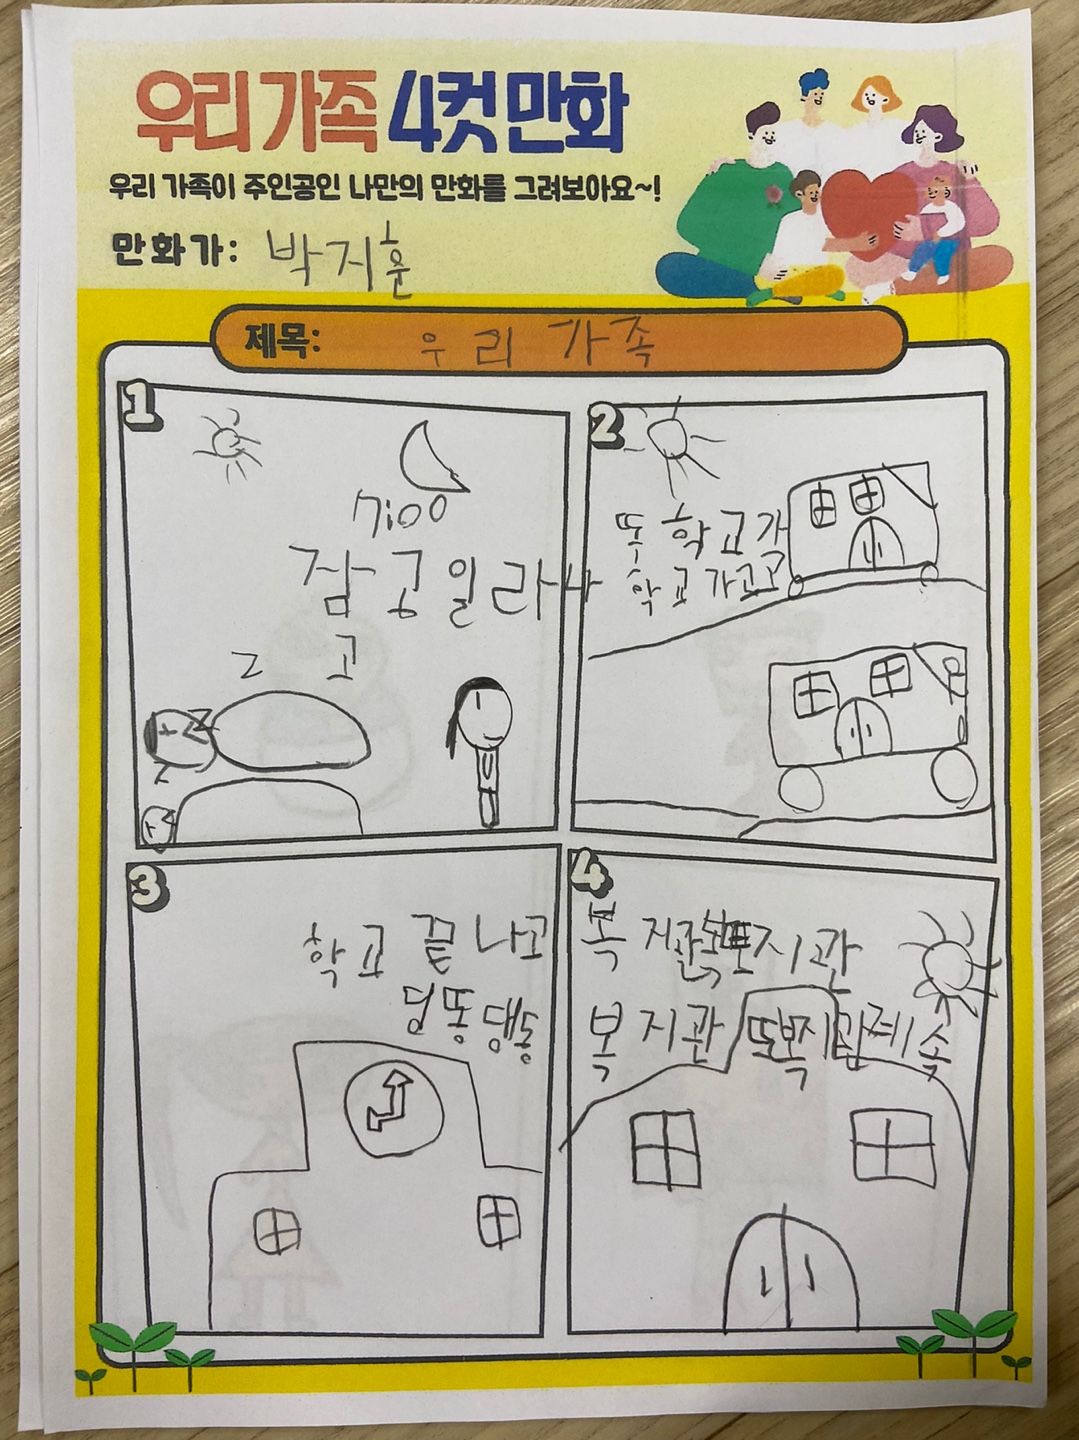 우리 가족 4컷 만화
우리 가족이 주인공인 나만의 만화를 그려보아요~!
만화가: 박지훈
제목: 우리 가족
1
7:00
잠 공 일라
고
z
2
또 학교각
학교 가고고
3
학교 끝나고
딩동댕동
4
복지관 지관
복지관 또복지관계속